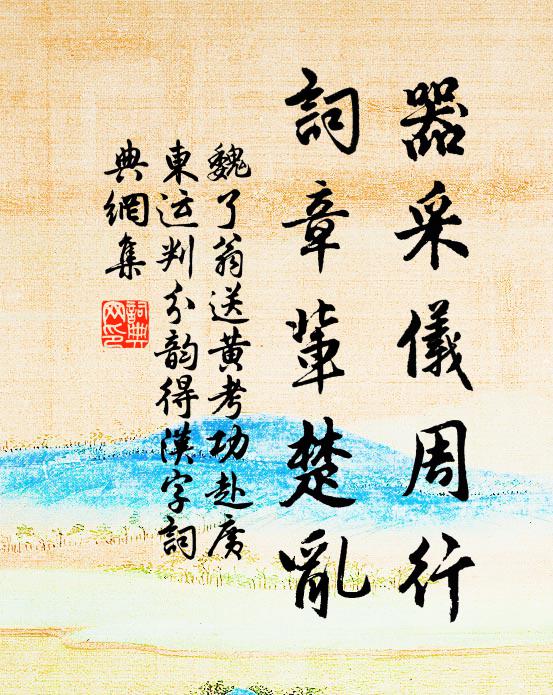 器采儀周行
詞章輩楚亂
魏了翁送黃考功赴廣
東运判分韵得漢字詞
典網集
詞典
网印